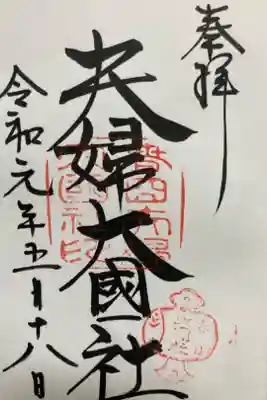 奉拝
夫婦大國社
令和元年五月十八日